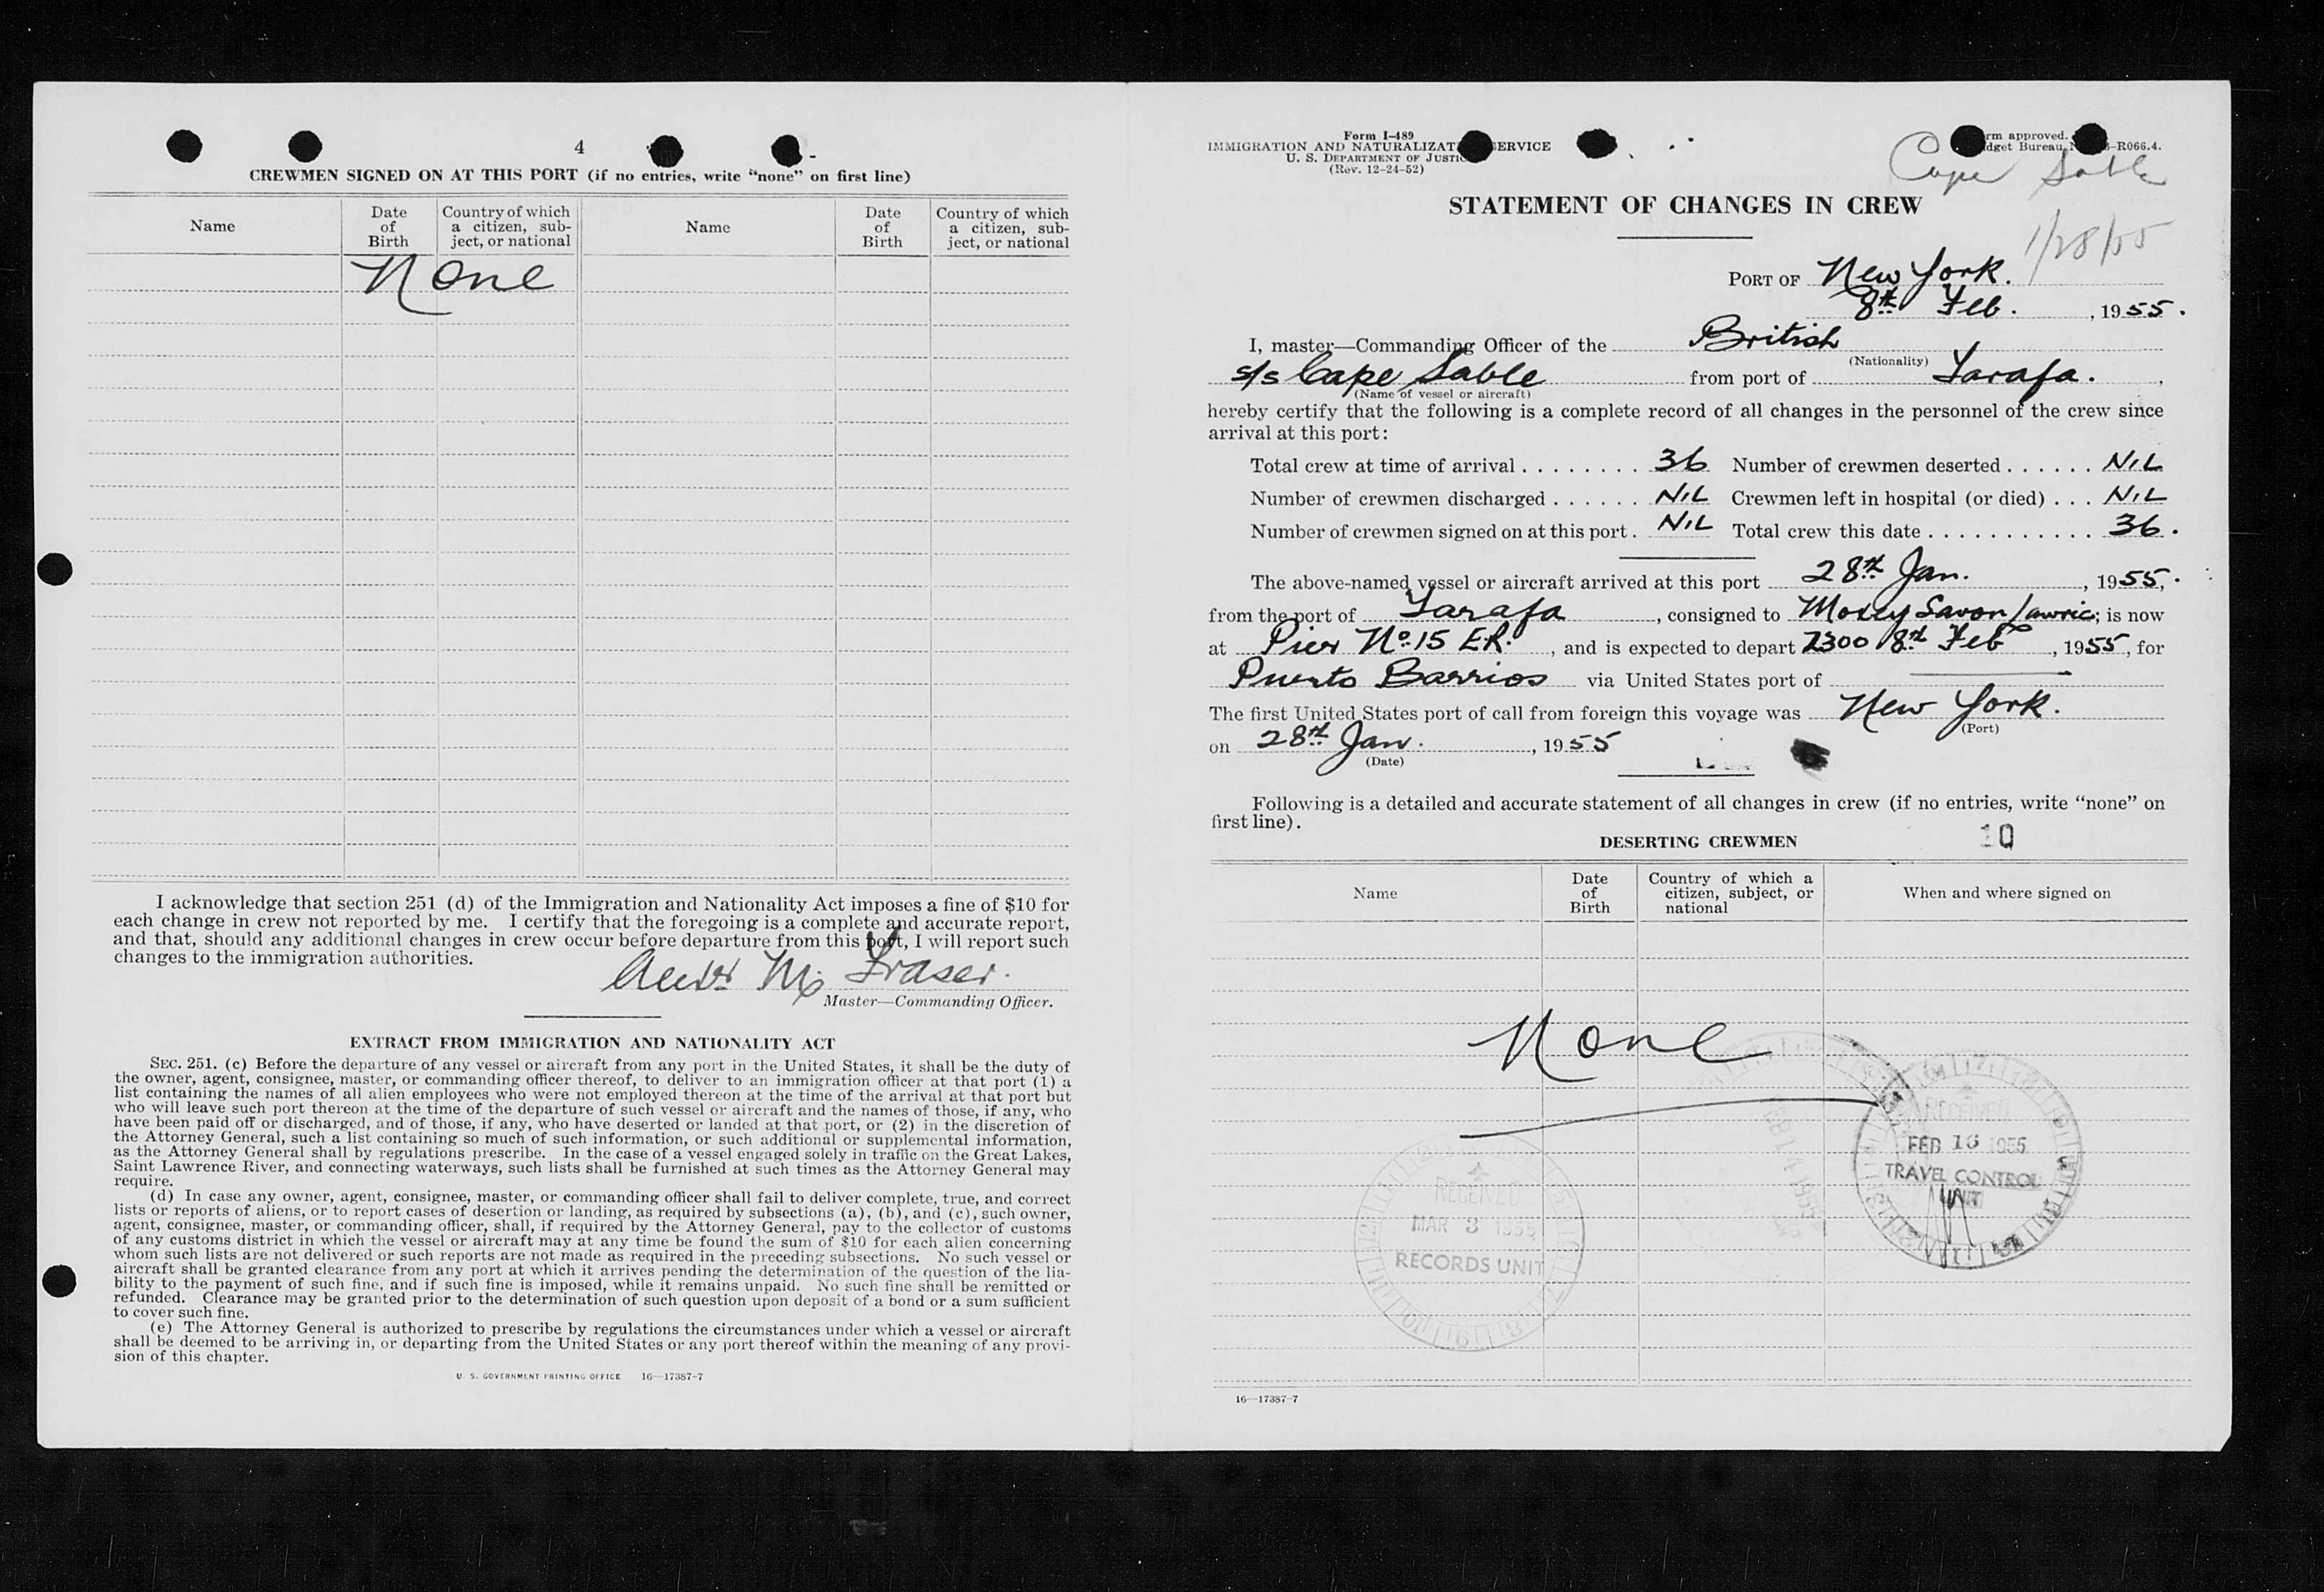 4
CREWMEN SIGNED ON AT THIS PORT (if no entries, write "none" on first line)
Name
Date of Birth
Country of which a citizen, subject, or national
Name
Date of Birth
Country of which a citizen, subject, or national
None
I acknowledge that section 251 (d) of the Immigration and Nationality Act imposes a fine of $10 for
each change in crew not reported by me. I certify that the foregoing is a complete and accurate report,
and that, should any additional changes in crew occur before departure from this port, I will report such
changes to the immigration authorities.
M. Fraser.
Master—Commanding Officer.
EXTRACT FROM IMMIGRATION AND NATIONALITY ACT
SEC. 251. (c) Before the departure of any vessel or aircraft from any port in the United States, it shall be the duty of
the owner, agent, consignee, master, or commanding officer thereof, to deliver to an immigration officer at that port (1) a
list containing the names of all alien employees who were not employed thereon at the time of the arrival at that port but
who will leave such port thereon at the time of the departure of such vessel or aircraft and the names of those, if any, who
have been paid off or discharged, and of those, if any, who have deserted or landed at that port, or (2) in the discretion of
the Attorney General, such a list containing so much of such information, or such additional or supplemental information,
as the Attorney General shall by regulations prescribe. In the case of a vessel engaged solely in traffic on the Great Lakes,
Saint Lawrence River, and connecting waterways, such lists shall be furnished at such times as the Attorney General may
require.
(d) In case any owner, agent, consignee, master, or commanding officer shall fail to deliver complete, true, and correct
lists or reports of aliens, or to report cases of desertion or landing, as required by subsections (a), (b), and (c), such owner,
agent, consignee, master, or commanding officer, shall, if required by the Attorney General, pay to the collector of customs
of any customs district in which the vessel or aircraft may at any time be found the sum of $10 for each alien concerning
whom such lists are not delivered or such reports are not made as required in the preceding subsections. No such vessel or
aircraft shall be granted clearance from any port at which it arrives pending the determination of the question of the lia-
bility to the payment of such fine, and if such fine is imposed, while it remains unpaid. No such fine shall be remitted or
refunded. Clearance may be granted prior to the determination of such question upon deposit of a bond or a sum sufficient
to cover such fine.
(e) The Attorney General is authorized to prescribe by regulations the circumstances under which a vessel or aircraft
shall be deemed to be arriving in, or departing from the United States or any port thereof within the meaning of any provi-
sion of this chapter.
U. S. GOVERNMENT PRINTING OFFICE 16—17387-7
Form I-489
IMMIGRATION AND NATURALIZAT ERVICE
U. S. DEPARTMENT OF JUSTIC
(Rev. 12-24-52)
rm approved.
dget Bureau -R066.4.
Cape Sable
1/28/55
STATEMENT OF CHANGES IN CREW
PORT OF New York.
8th Feb. , 1955.
I, master—Commanding Officer of the British
(Nationality)
s/s Cape Sable from port of Tarafa.,
(Name of vessel or aircraft)
hereby certify that the following is a complete record of all changes in the personnel of the crew since
arrival at this port:
Total crew at time of arrival ........ 36 Number of crewmen deserted ...... NIL
Number of crewmen discharged ...... NIL Crewmen left in hospital (or died) ... NIL
Number of crewmen signed on at this port. NIL Total crew this date ........... 36.
The above-named vessel or aircraft arrived at this port 28th Jan. , 1955,
from the port of Tarafa , consigned to ; is now
at Pier No. 15 E.R. , and is expected to depart 2300 8th Feb , 1955, for
Puerto Barrios via United States port of
The first United States port of call from foreign this voyage was New York.
(Port)
on 28th Jan. , 1955
(Date)
Following is a detailed and accurate statement of all changes in crew (if no entries, write "none" on
first line).
10
DESERTING CREWMEN
Name
Date of Birth
Country of which a citizen, subject, or national
When and where signed on
None
RECEIVED
FEB 16 1955
TRAVEL CONTROL
UNIT
RECEIVED
MAR 3 1955
RECORDS UNIT
16—17387-7